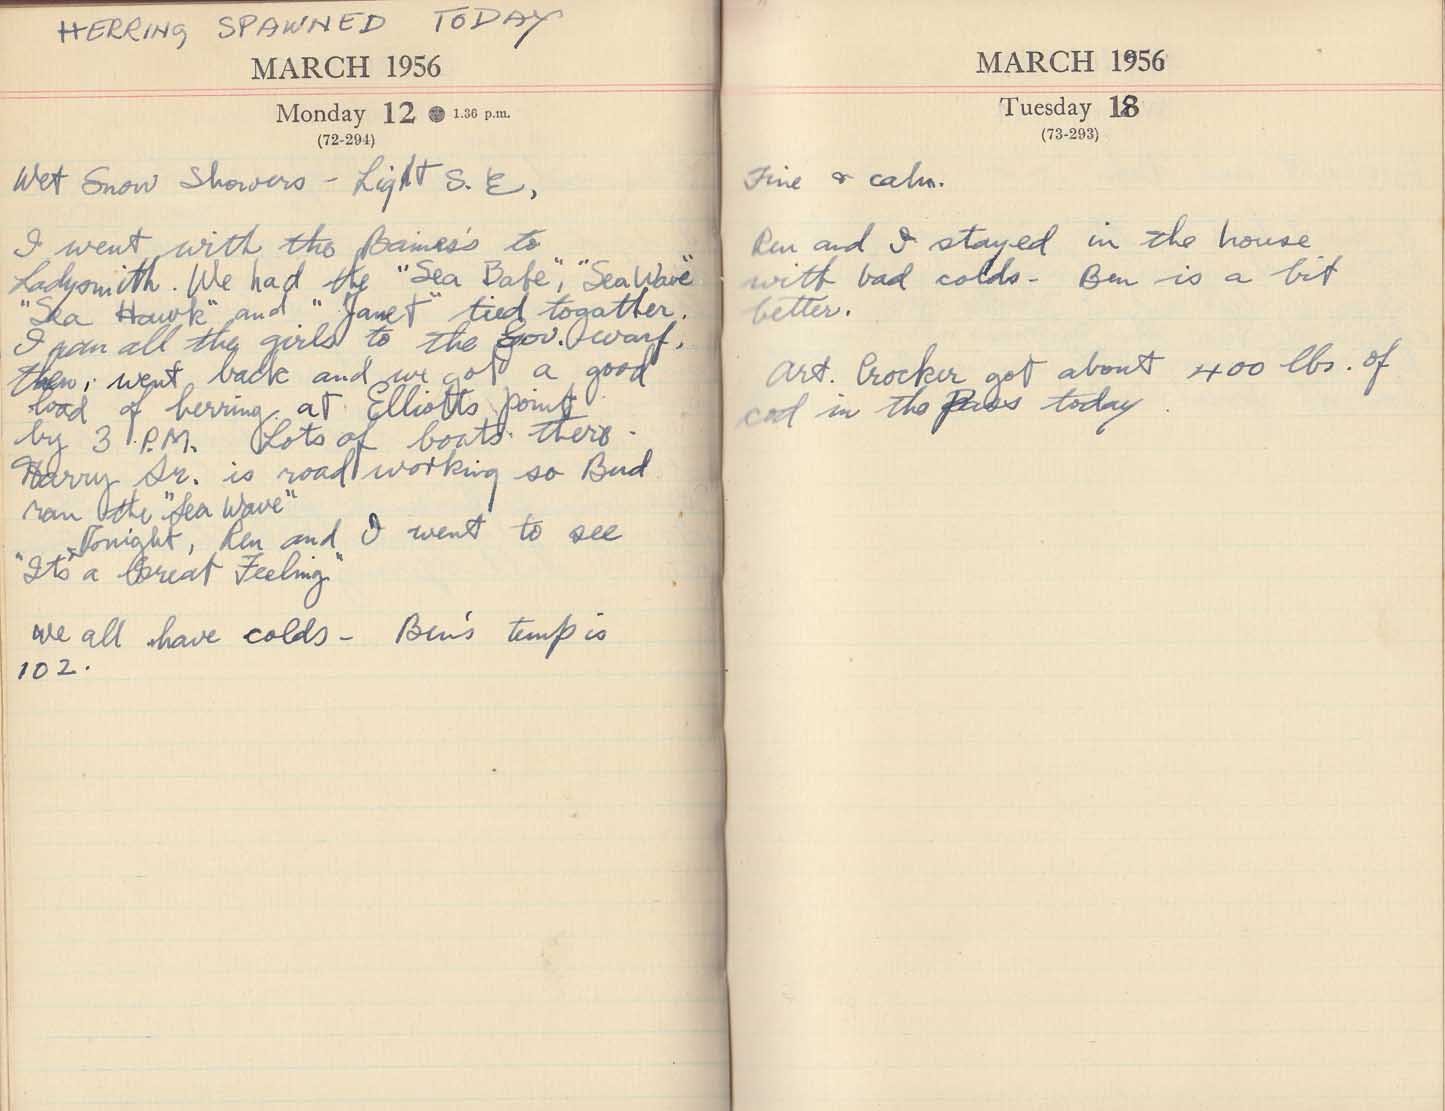 HERRING SPAWNED TODAY
MARCH 1956
Monday 12 1.36 p.m.
(72-294)
Wet Snow Showers - Light S. E,
I went with the Baines's to
Ladysmith. We had the "Sea Babe", "Sea Wave"
"Sea Hawk" and "Janet" tied togather.
I ran all the girls to the Gov. warf,
then, went back and we got a good
load of herring at Elliotts point
by 3 P.M. Lots of boats there.
Harry Sr. is road working so Bud
ran the "Sea Wave"
Tonight, Ren and I went to see
"It's a Great Feeling"
we all have colds - Ben's temp is
102.
MARCH 1956
Tuesday 13
(73-293)
Fine & calm.
Ren and I stayed in the house
with bad colds - Ben is a bit
better.
Art. Crocker got about 400 lbs. of
cod in the Pass today.